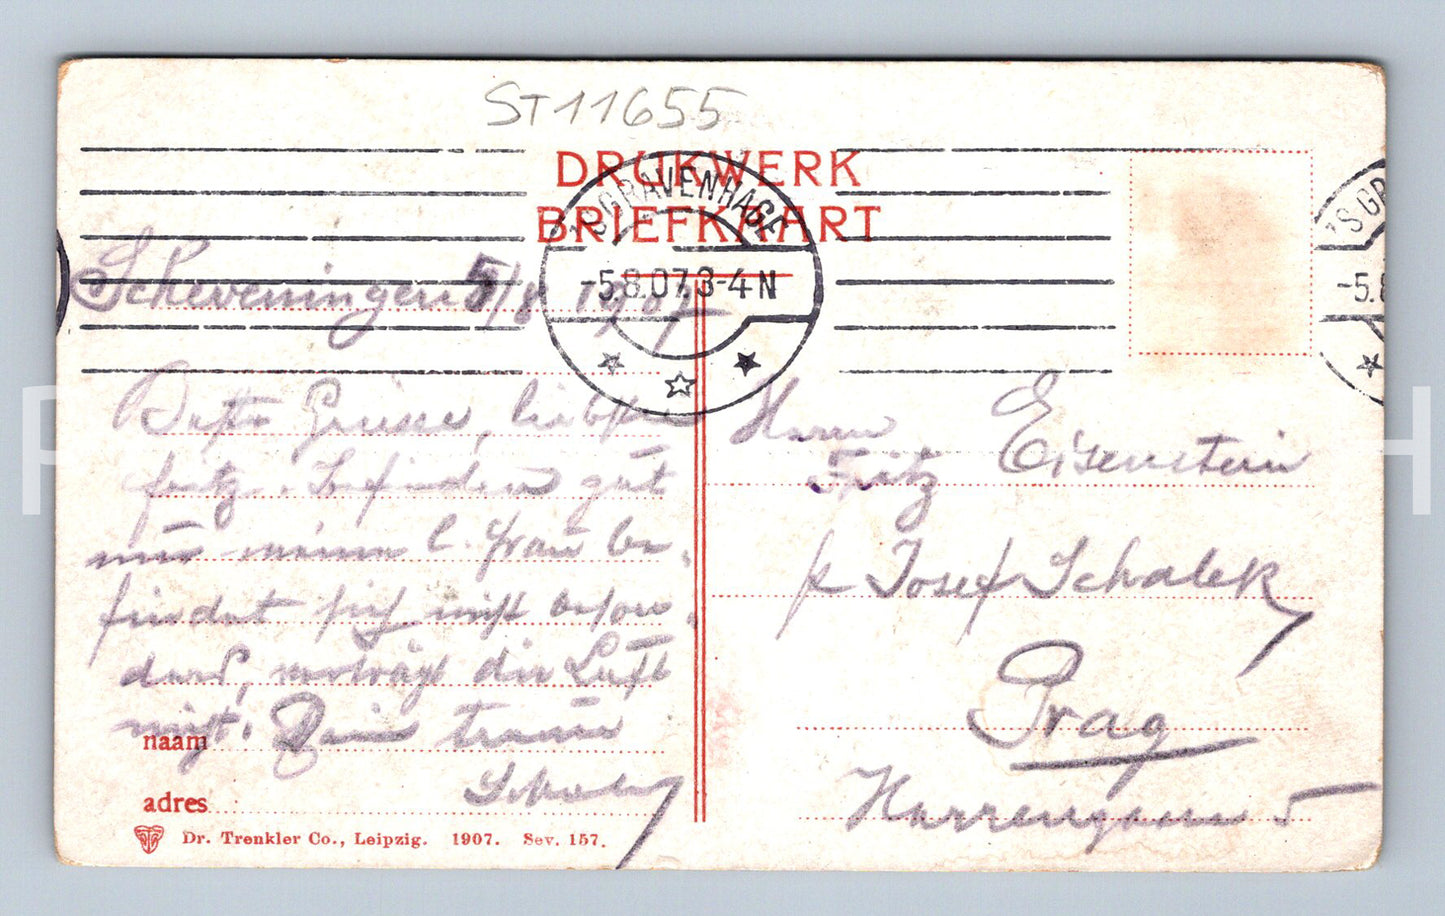 ST11655
DRUKWERK
BRIEFKAART
'S GRAVENHAGE
-5.8.07.3-4N
'S GR
-5.8
Scheveningen 5/8 1907
Beste Grüsse, liebster
Fritz. Befinden gut
nur meine l. Frau be-
findet sich nicht beson-
ders, verträgt die Luft
nicht. Dein treuer
Schalek
naam
adres
Dr. Trenkler Co., Leipzig. 1907. Sev. 157.
Herrn
Fritz Eisenstein
p Josef Schalek
Prag
Herrengasse 5